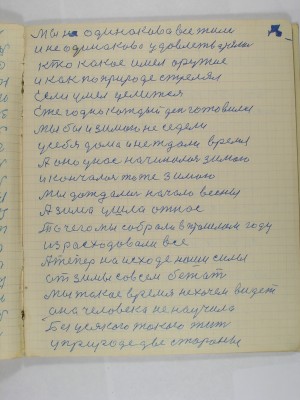 Мы не одинаково все жили
и не одинаково удовлетворяли
кто какое имел оружие
и как по природе стрелял
Если умел целится
Ежегодно каждый деп готовилы
Мы бы и зимою не седели
у себя дома и не ждали время
А оно у нас начиналоя зимою
и кончалоя то же зимою
Мы дождалися начало весны
А зима ушла от нас
Та чего мы собрали в прошлом году
израсходовали все
А тепер на исходе наши силы
от зимы совсем бежат
Мы такое время не хочем видет
она человека не научила
Без усякого такого жит
у природе две стороны